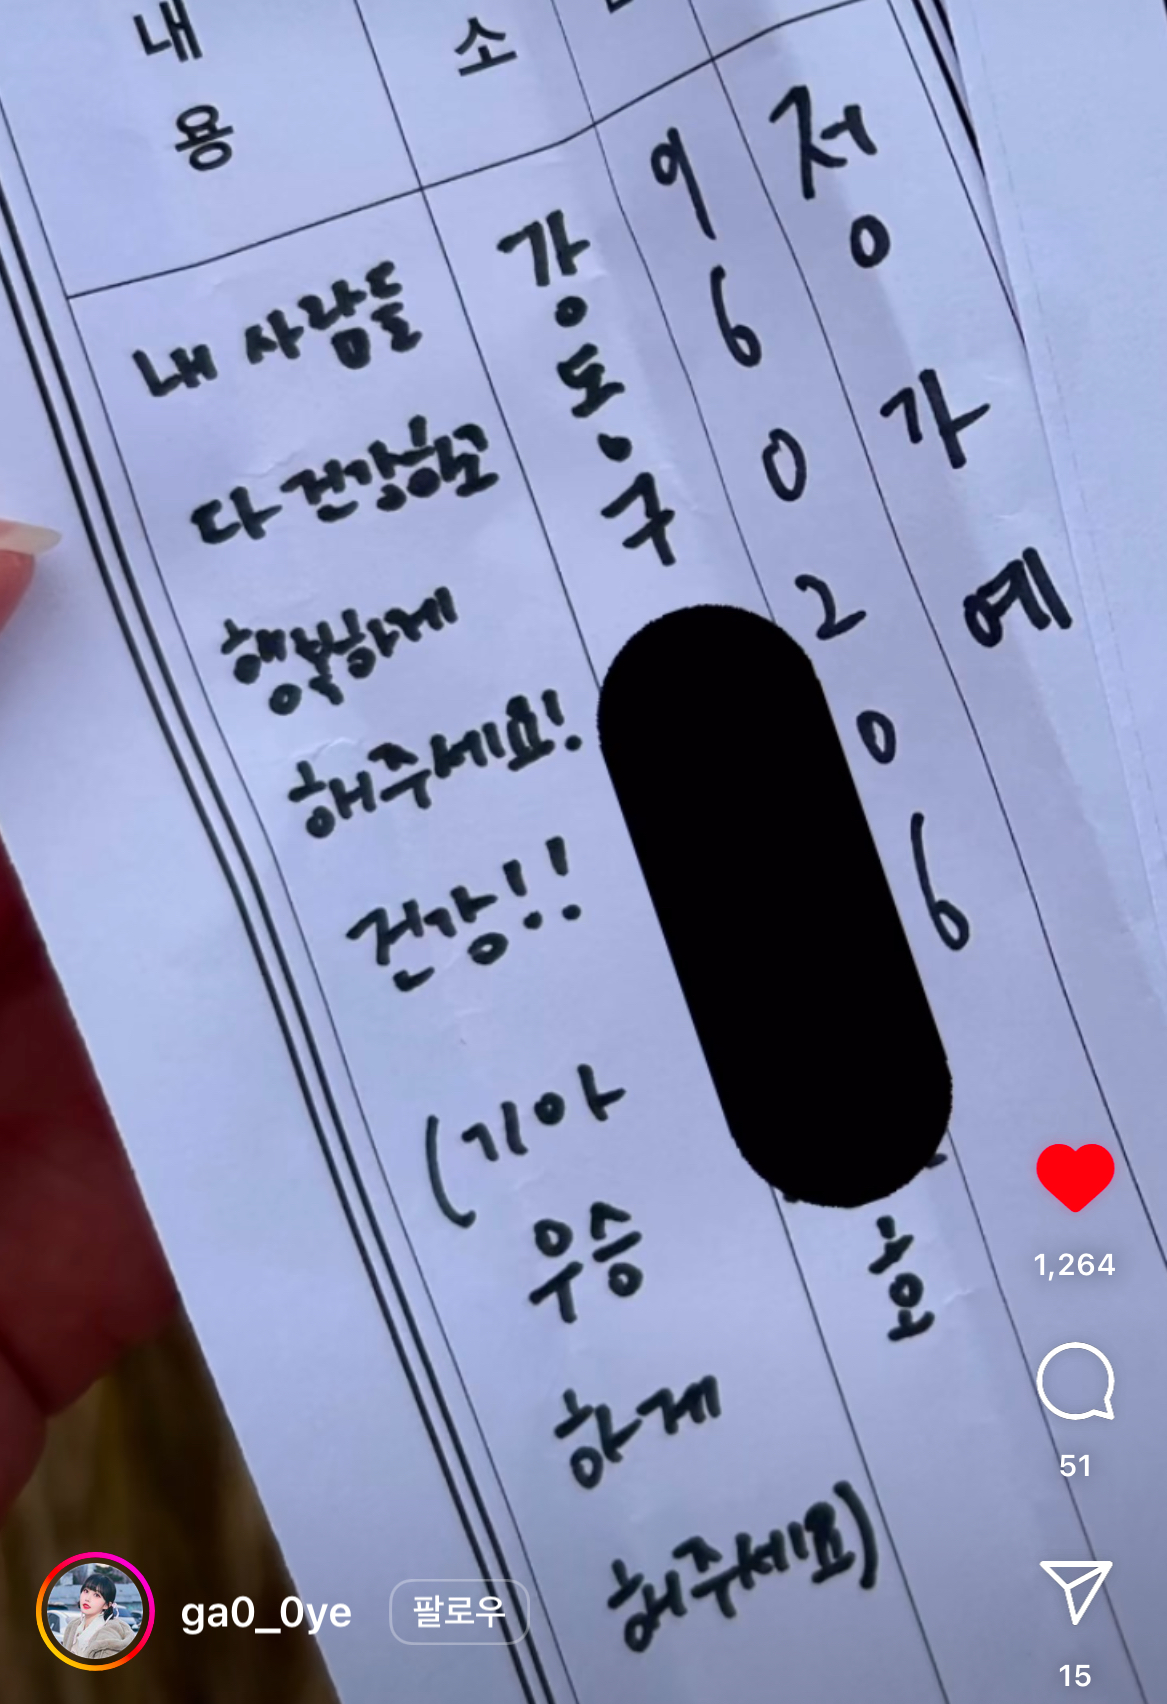 정가예
960206
소
강동구
호
내용
내 사람들
다 건강하고
행복하게
해주세요!
건강!!
(기아
우승
하게
해주세요)
1,264
51
15
ga0_0ye
팔로우